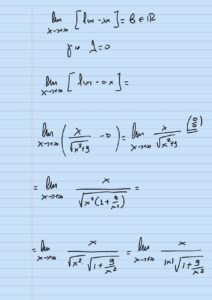 lim x→+∞ [f(x) - λx] = β ∈ ℝ
για λ=0
lim x→+∞ [f(x) - 0·x] =
lim x→+∞ ( x / √(x²+9) - 0 ) = lim x→+∞ x / √(x²+9)
= lim x→+∞ x / √(x²(1+9/x²)) =
= lim x→+∞ x / (√x² · √(1+9/x²)) = lim x→+∞ x / (|x| √(1+9/x²))